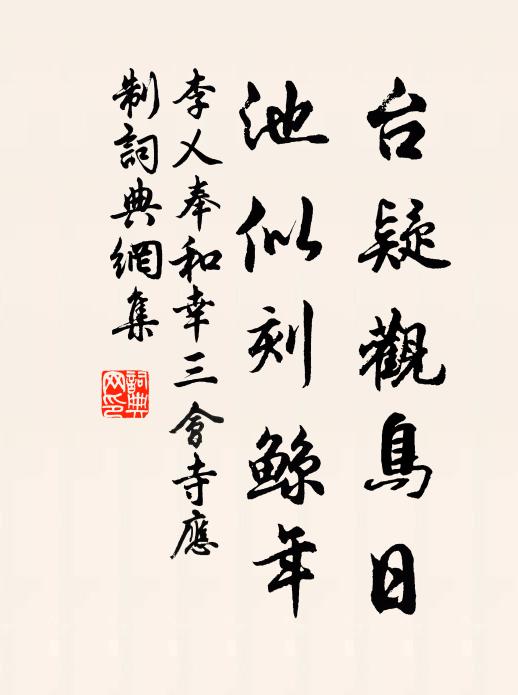 台疑觀鳥日
池似刻鯨年
李乂奉和幸三會寺應
制詞典網集
詞典
网印